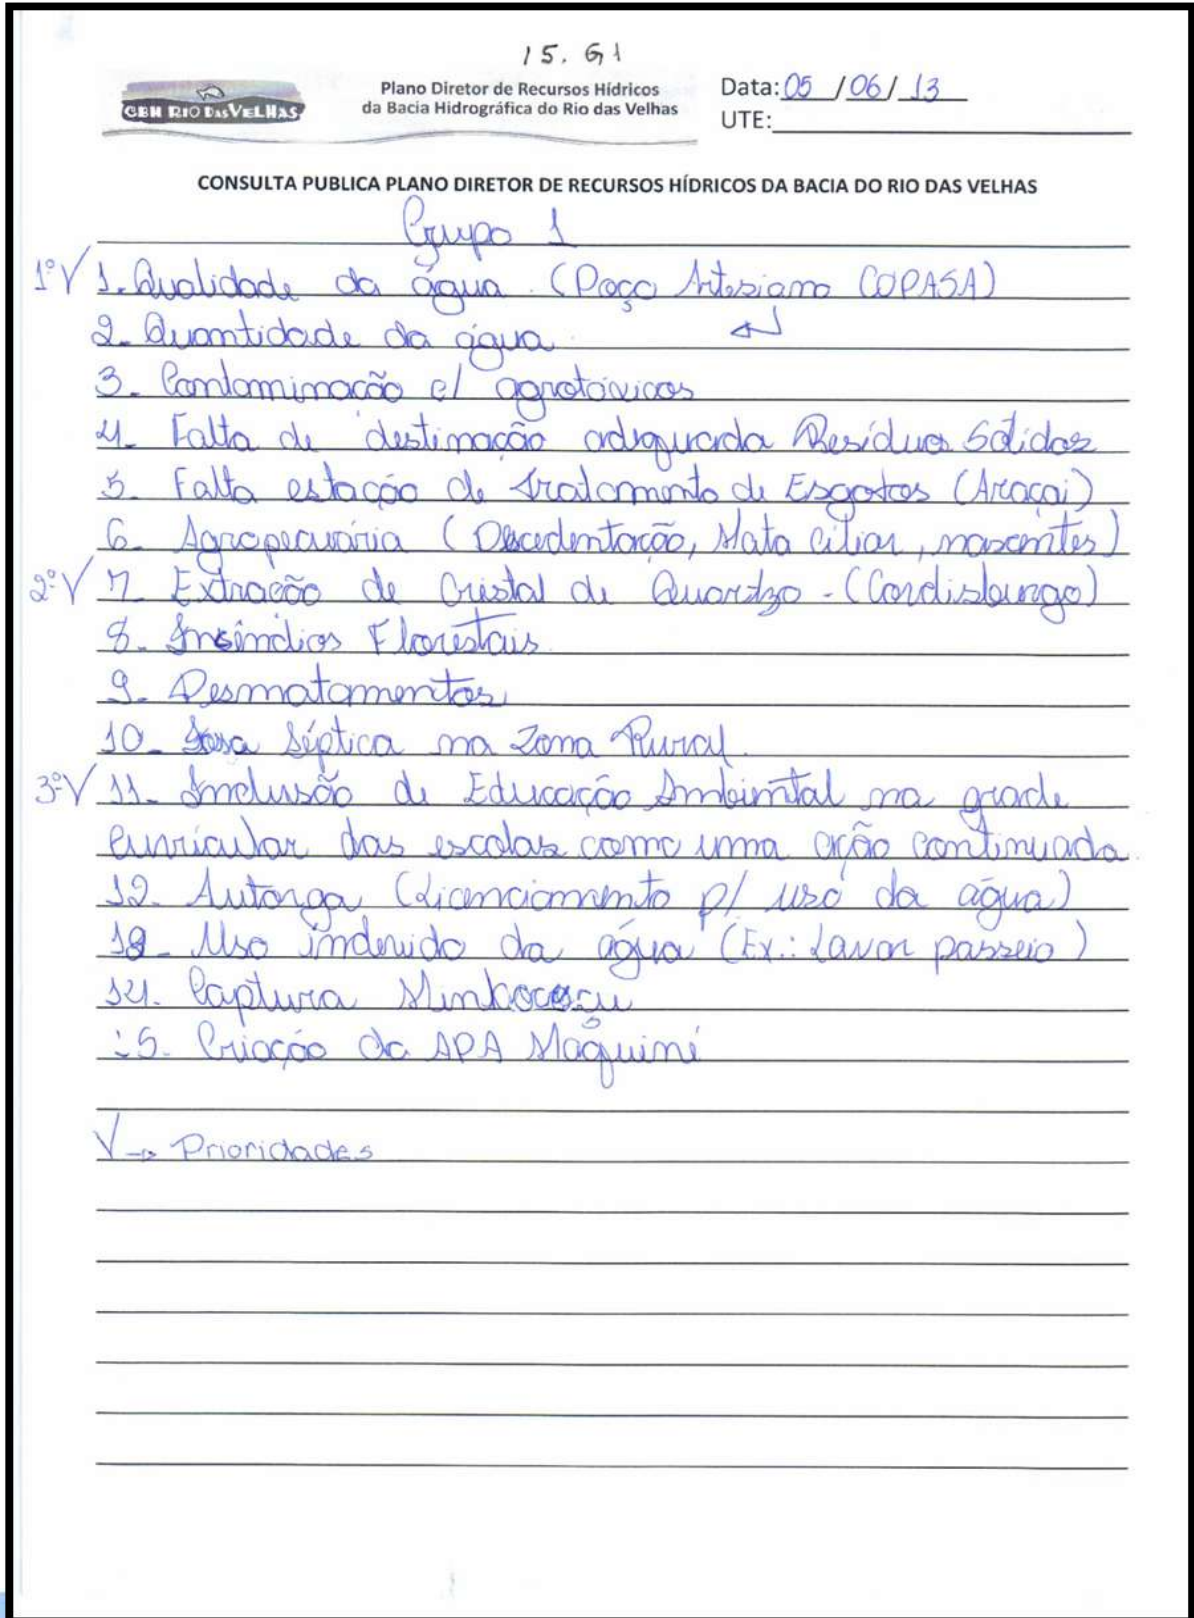 15. G1
CBH RIO DAS VELHAS
Plano Diretor de Recursos Hídricos
da Bacia Hidrográfica do Rio das Velhas
Data: 05 / 06 / 13
UTE:
CONSULTA PUBLICA PLANO DIRETOR DE RECURSOS HÍDRICOS DA BACIA DO RIO DAS VELHAS
Grupo 1
1º V 1. Qualidade da água (Poço Artesiano COPASA)
2. Quantidade da água ↵
3. Contaminação c/ agrotóxicos
4. Falta de destinação adequada Resíduos Sólidos
5. Falta estação de tratamento de Esgotos (Araçai)
6. Agropecuária (Dessedentação, Mata Ciliar, nascentes)
2º V 7. Extração de Cristal de Quartzo - (Cordisburgo)
8. Insêndios Florestais
9. Desmatamentos
10. Fossa Séptica na Zona Rural.
3º V 11. Inclusão de Educação Ambiental na grade
curricular das escolas como uma ação continuada.
12. Autorga (Licenciamento p/ uso da água)
13. Uso indevido da água (Ex.: Lavar passeio)
14. Captura Minhocuçu
15. Criação da APA Maquiné
V → Prioridades